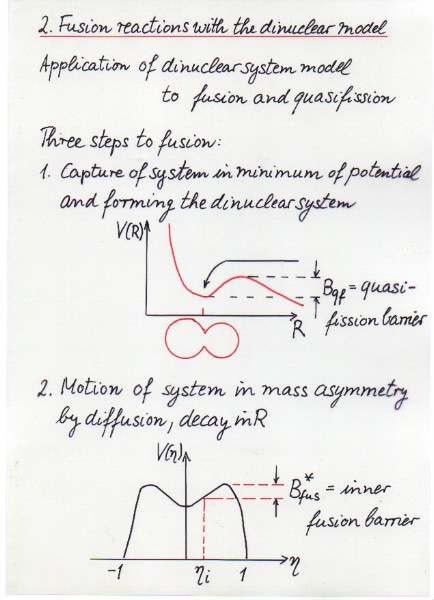 2. Fusion reactions with the dinuclear model
Application of dinuclear system model
to fusion and quasifission
Three steps to fusion:
1. Capture of system in minimum of potential
and forming the dinuclear system
V(R)
B_qf = quasi-
fission barrier
R
2. Motion of system in mass asymmetry
by diffusion, decay in R
V(η)
B*_fus = inner
fusion barrier
-1 η_i 1 η